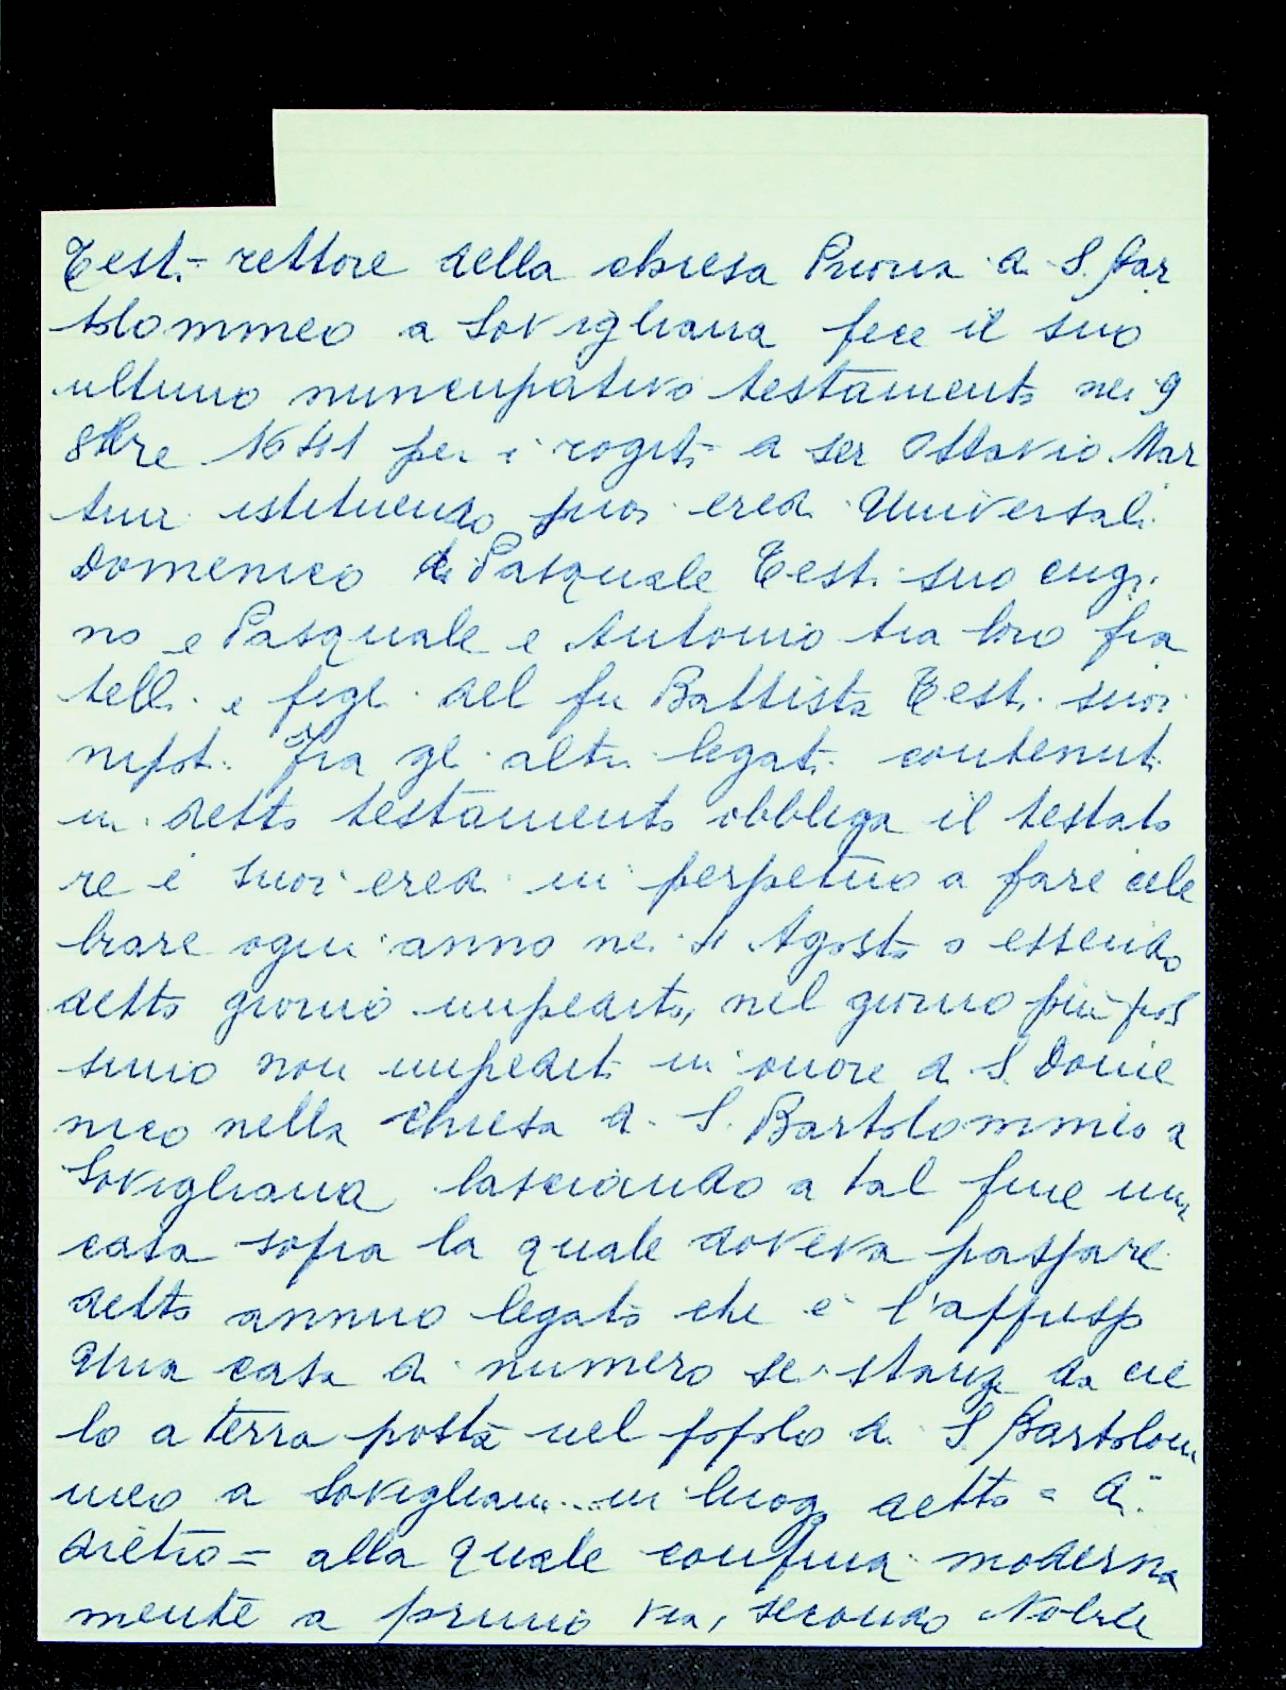 Testi = rettore della chiesa Prioria di S. Bar
tolommeo a Sovigliana fece il suo
ultimo nuncupativo testamento nei 9
8bre 1641 per i rogiti di ser Ottavio Mar
tini istituendo suoi eredi Universali
Domenico di Pasquale Testi suo cugi
no e Pasquale e Antonio tra loro fra
telli e figli del fu Battista Testi suoi
nipoti. Fra gli altri legati contenuti
in detto testamento obbliga il testato
re i suoi eredi in perpetuo a fare cele
brare ogni anno nei 4 Agosto o essendo
detto giorno impedito, nel giorno più pros
simo non impedito in onore di S. Dome
nico nella chiesa di S. Bartolommeo a
Sovigliana lasciando a tal fine una
casa sopra la quale doveva passare
detto annuo legato che è l'appresso
Una casa di numero sei stanze da cie
lo a terra posta nel popolo di S. Bartolom
meo a Sovigliana in luogo detto = Di
dietro = alla quale confina moderna
mente a primo via, secondo Nobile